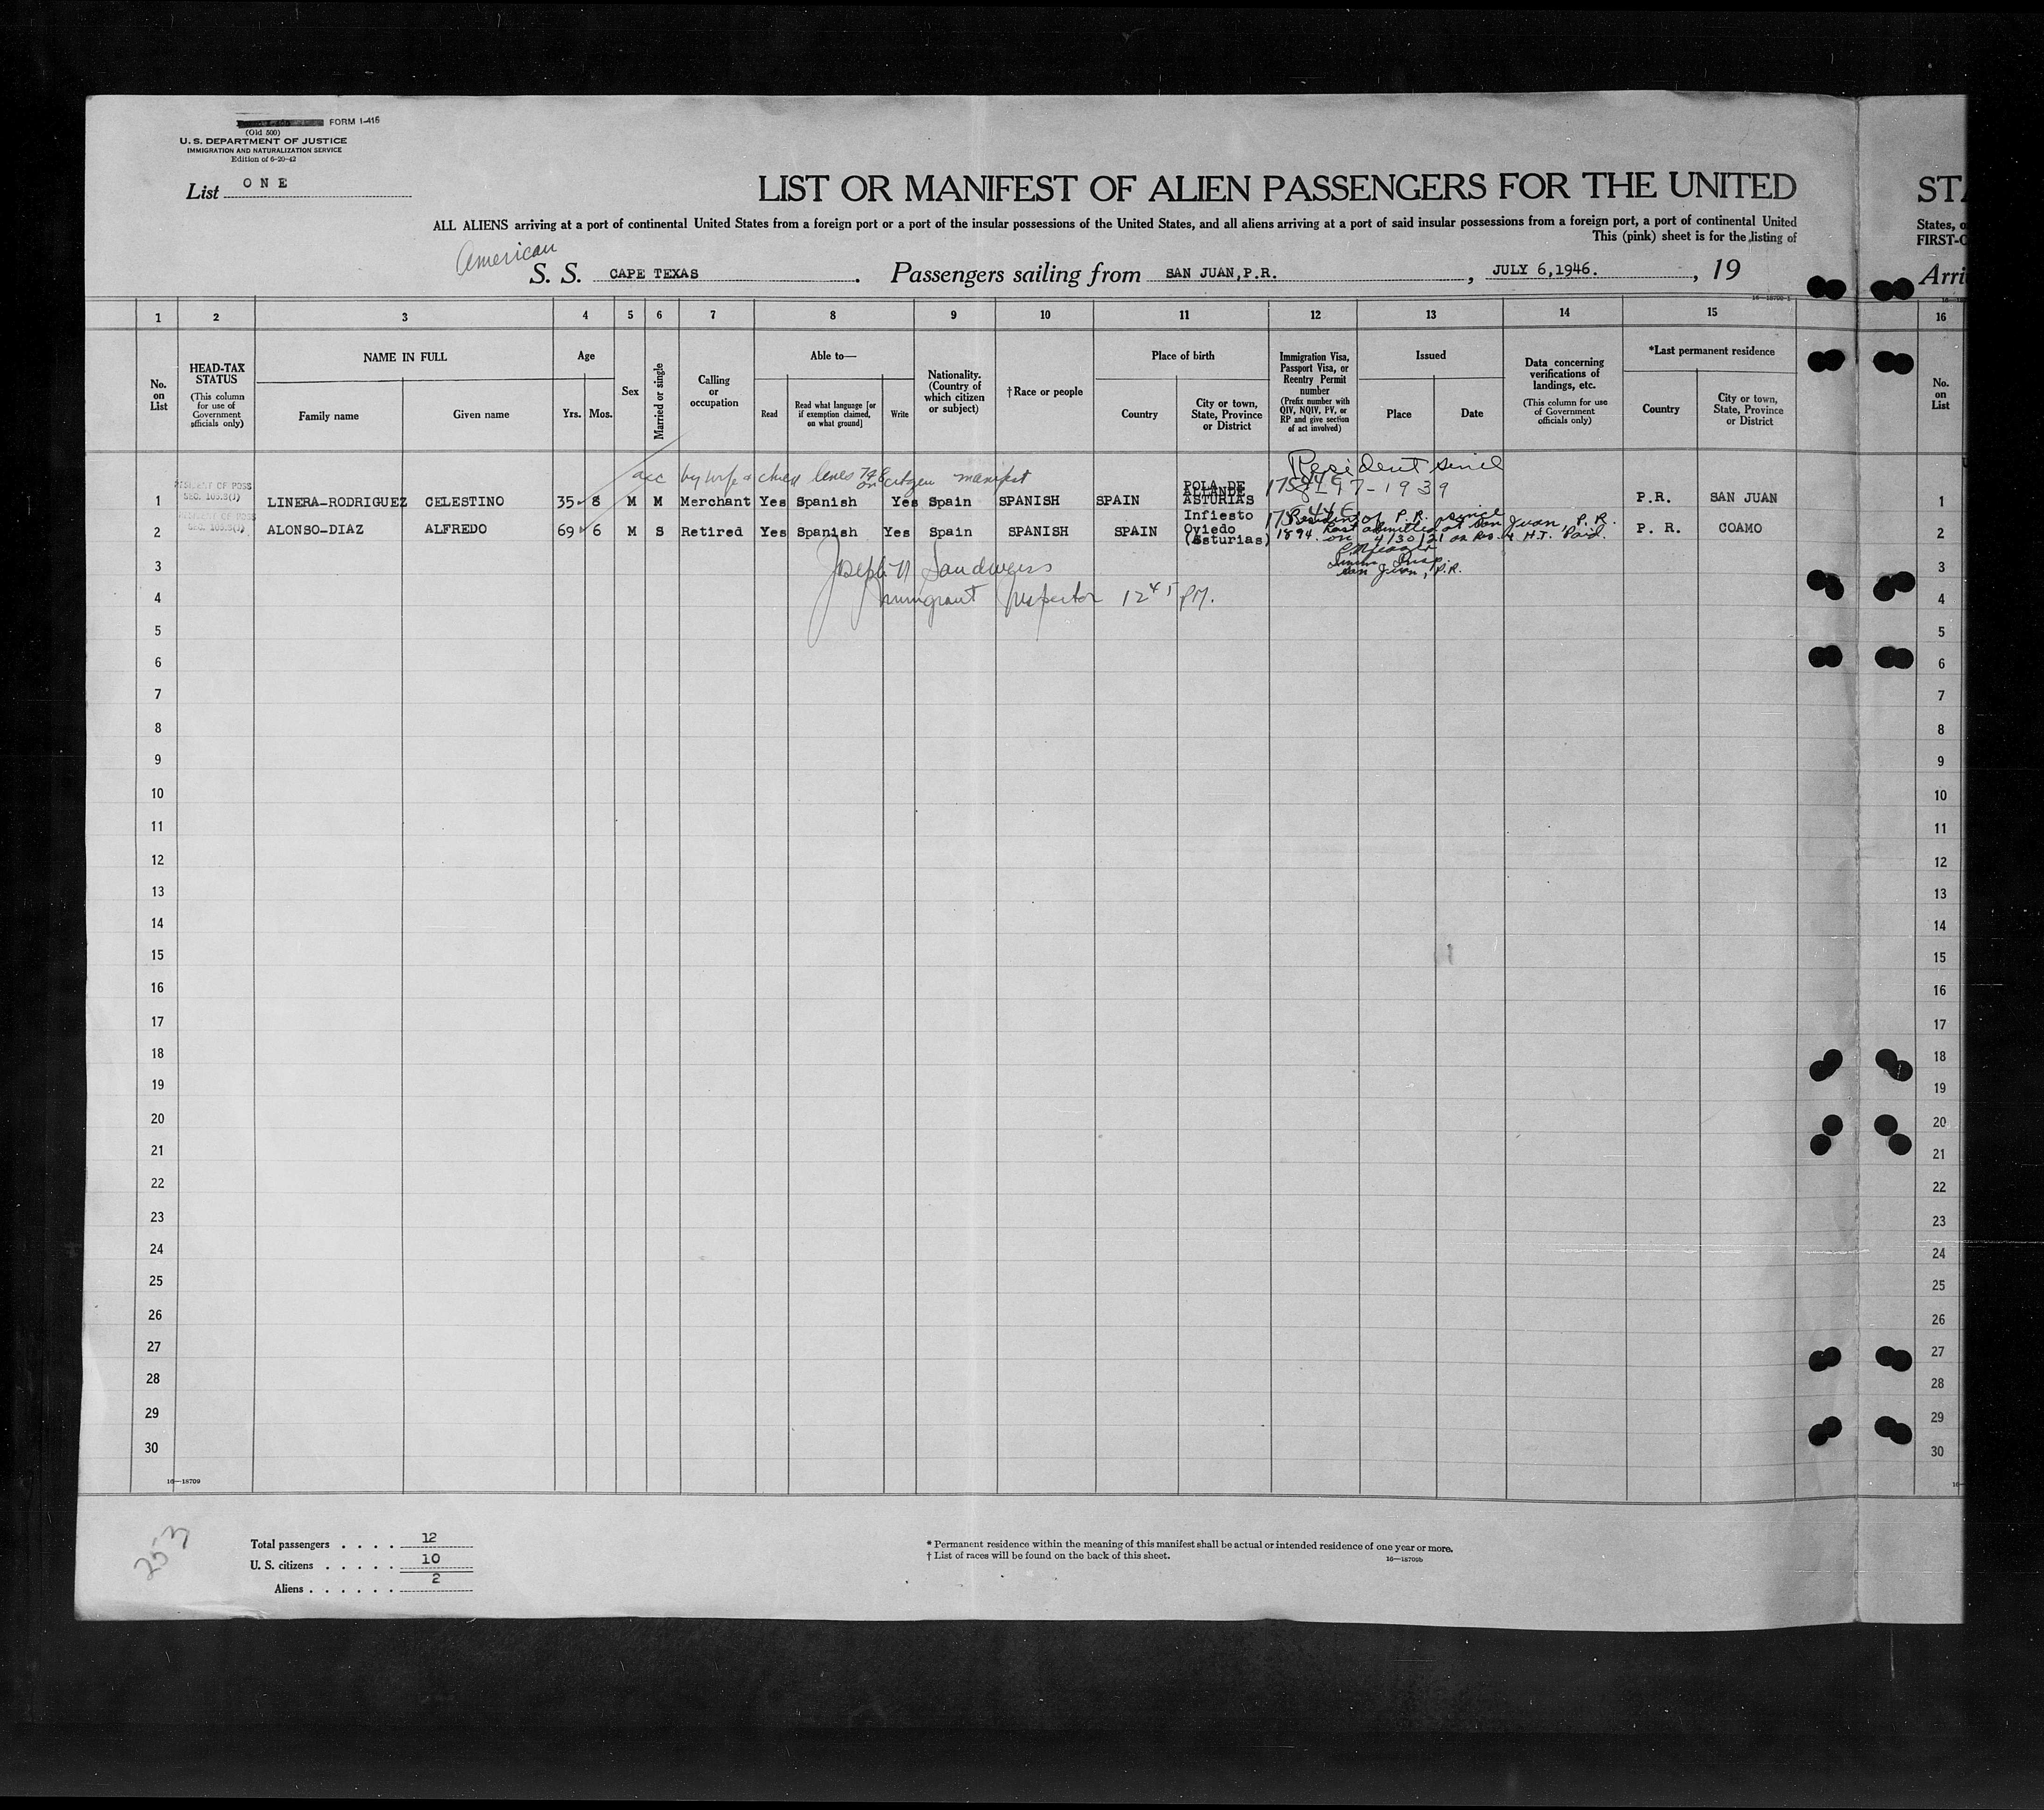 FORM I-415
(Old 500)
U. S. DEPARTMENT OF JUSTICE
IMMIGRATION AND NATURALIZATION SERVICE
Edition of 6-20-42
List ONE
LIST OR MANIFEST OF ALIEN PASSENGERS FOR THE UNITED
ALL ALIENS arriving at a port of continental United States from a foreign port or a port of the insular possessions of the United States, and all aliens arriving at a port of said insular possessions from a foreign port, a port of continental United
This (pink) sheet is for the listing of
American
S. S. CAPE TEXAS. Passengers sailing from SAN JUAN, P.R., JULY 6, 1946., 19
ST
States, o
FIRST-C
Arri
1 2 3 4 5 6 7 8 9 10 11 12 13 14 15 16
No. on List
HEAD-TAX STATUS
(This column for use of Government officials only)
NAME IN FULL
Family name Given name
Age
Yrs. Mos.
Sex
Married or single
Calling or occupation
Able to—
Read Read what language [or if exemption claimed, on what ground] Write
Nationality. (Country of which citizen or subject)
†Race or people
Place of birth
Country City or town, State, Province or District
Immigration Visa, Passport Visa, or Reentry Permit number
(Prefix number with QIV, NQIV, PV, or RP and give section of act involved)
Issued
Place Date
Data concerning verifications of landings, etc.
(This column for use of Government officials only)
*Last permanent residence
Country City or town, State, Province or District
No. on List
acc by wife & child lines 7&8 on citizen manifest
Resident since
8-17-1939
1 LINERA-RODRIGUEZ CELESTINO 35 8 M M Merchant Yes Spanish Yes Spain SPANISH SPAIN POLA DE ALLANDE ASTURIAS P.R. SAN JUAN 1
2 ALONSO-DIAZ ALFREDO 69 6 M S Retired Yes Spanish Yes Spain SPANISH SPAIN Infiesto Oviedo (Asturias) P. R. COAMO 2
Resident of P.R. since
1894. Last admitted at San Juan, P.R.
on 4/30/21 H.T. Paid.
San Juan, P.R.
Immigrant Inspector 12 45 PM.
3 3
4 4
5 5
6 6
7 7
8 8
9 9
10 10
11 11
12 12
13 13
14 14
15 15
16 16
17 17
18 18
19 19
20 20
21 21
22 22
23 23
24 24
25 25
26 26
27 27
28 28
29 29
30 30
16—18709
253
Total passengers . . . . 12
U. S. citizens . . . . . 10
Aliens . . . . . . 2
* Permanent residence within the meaning of this manifest shall be actual or intended residence of one year or more.
† List of races will be found on the back of this sheet.
16—18709b